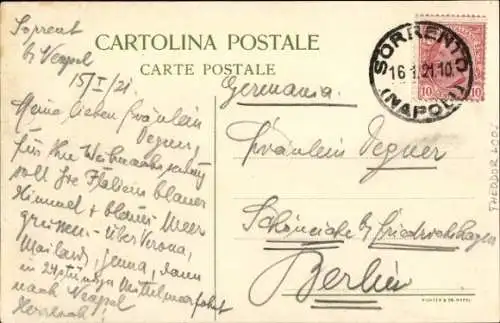 Sorrent
b/ Neapel
15/I/21.
Meine lieben Fräulein
Degner,
für Ihre Weihnachtssendung
soll Ihnen Italiens blauer
Himmel + blaues Meer
grüssen - über Verona,
Mailand, Genua, dann
in 24 stündiger Mittelmeerfahrt
nach Neapel
CARTOLINA POSTALE
CARTE POSTALE
Germania.
SORRENTO
16.1.21.10
(NAPOLI)
10 10
Fräulein Degner
Schöneiche b/ Friedrichshagen
Berlin
THEODOR LOOS